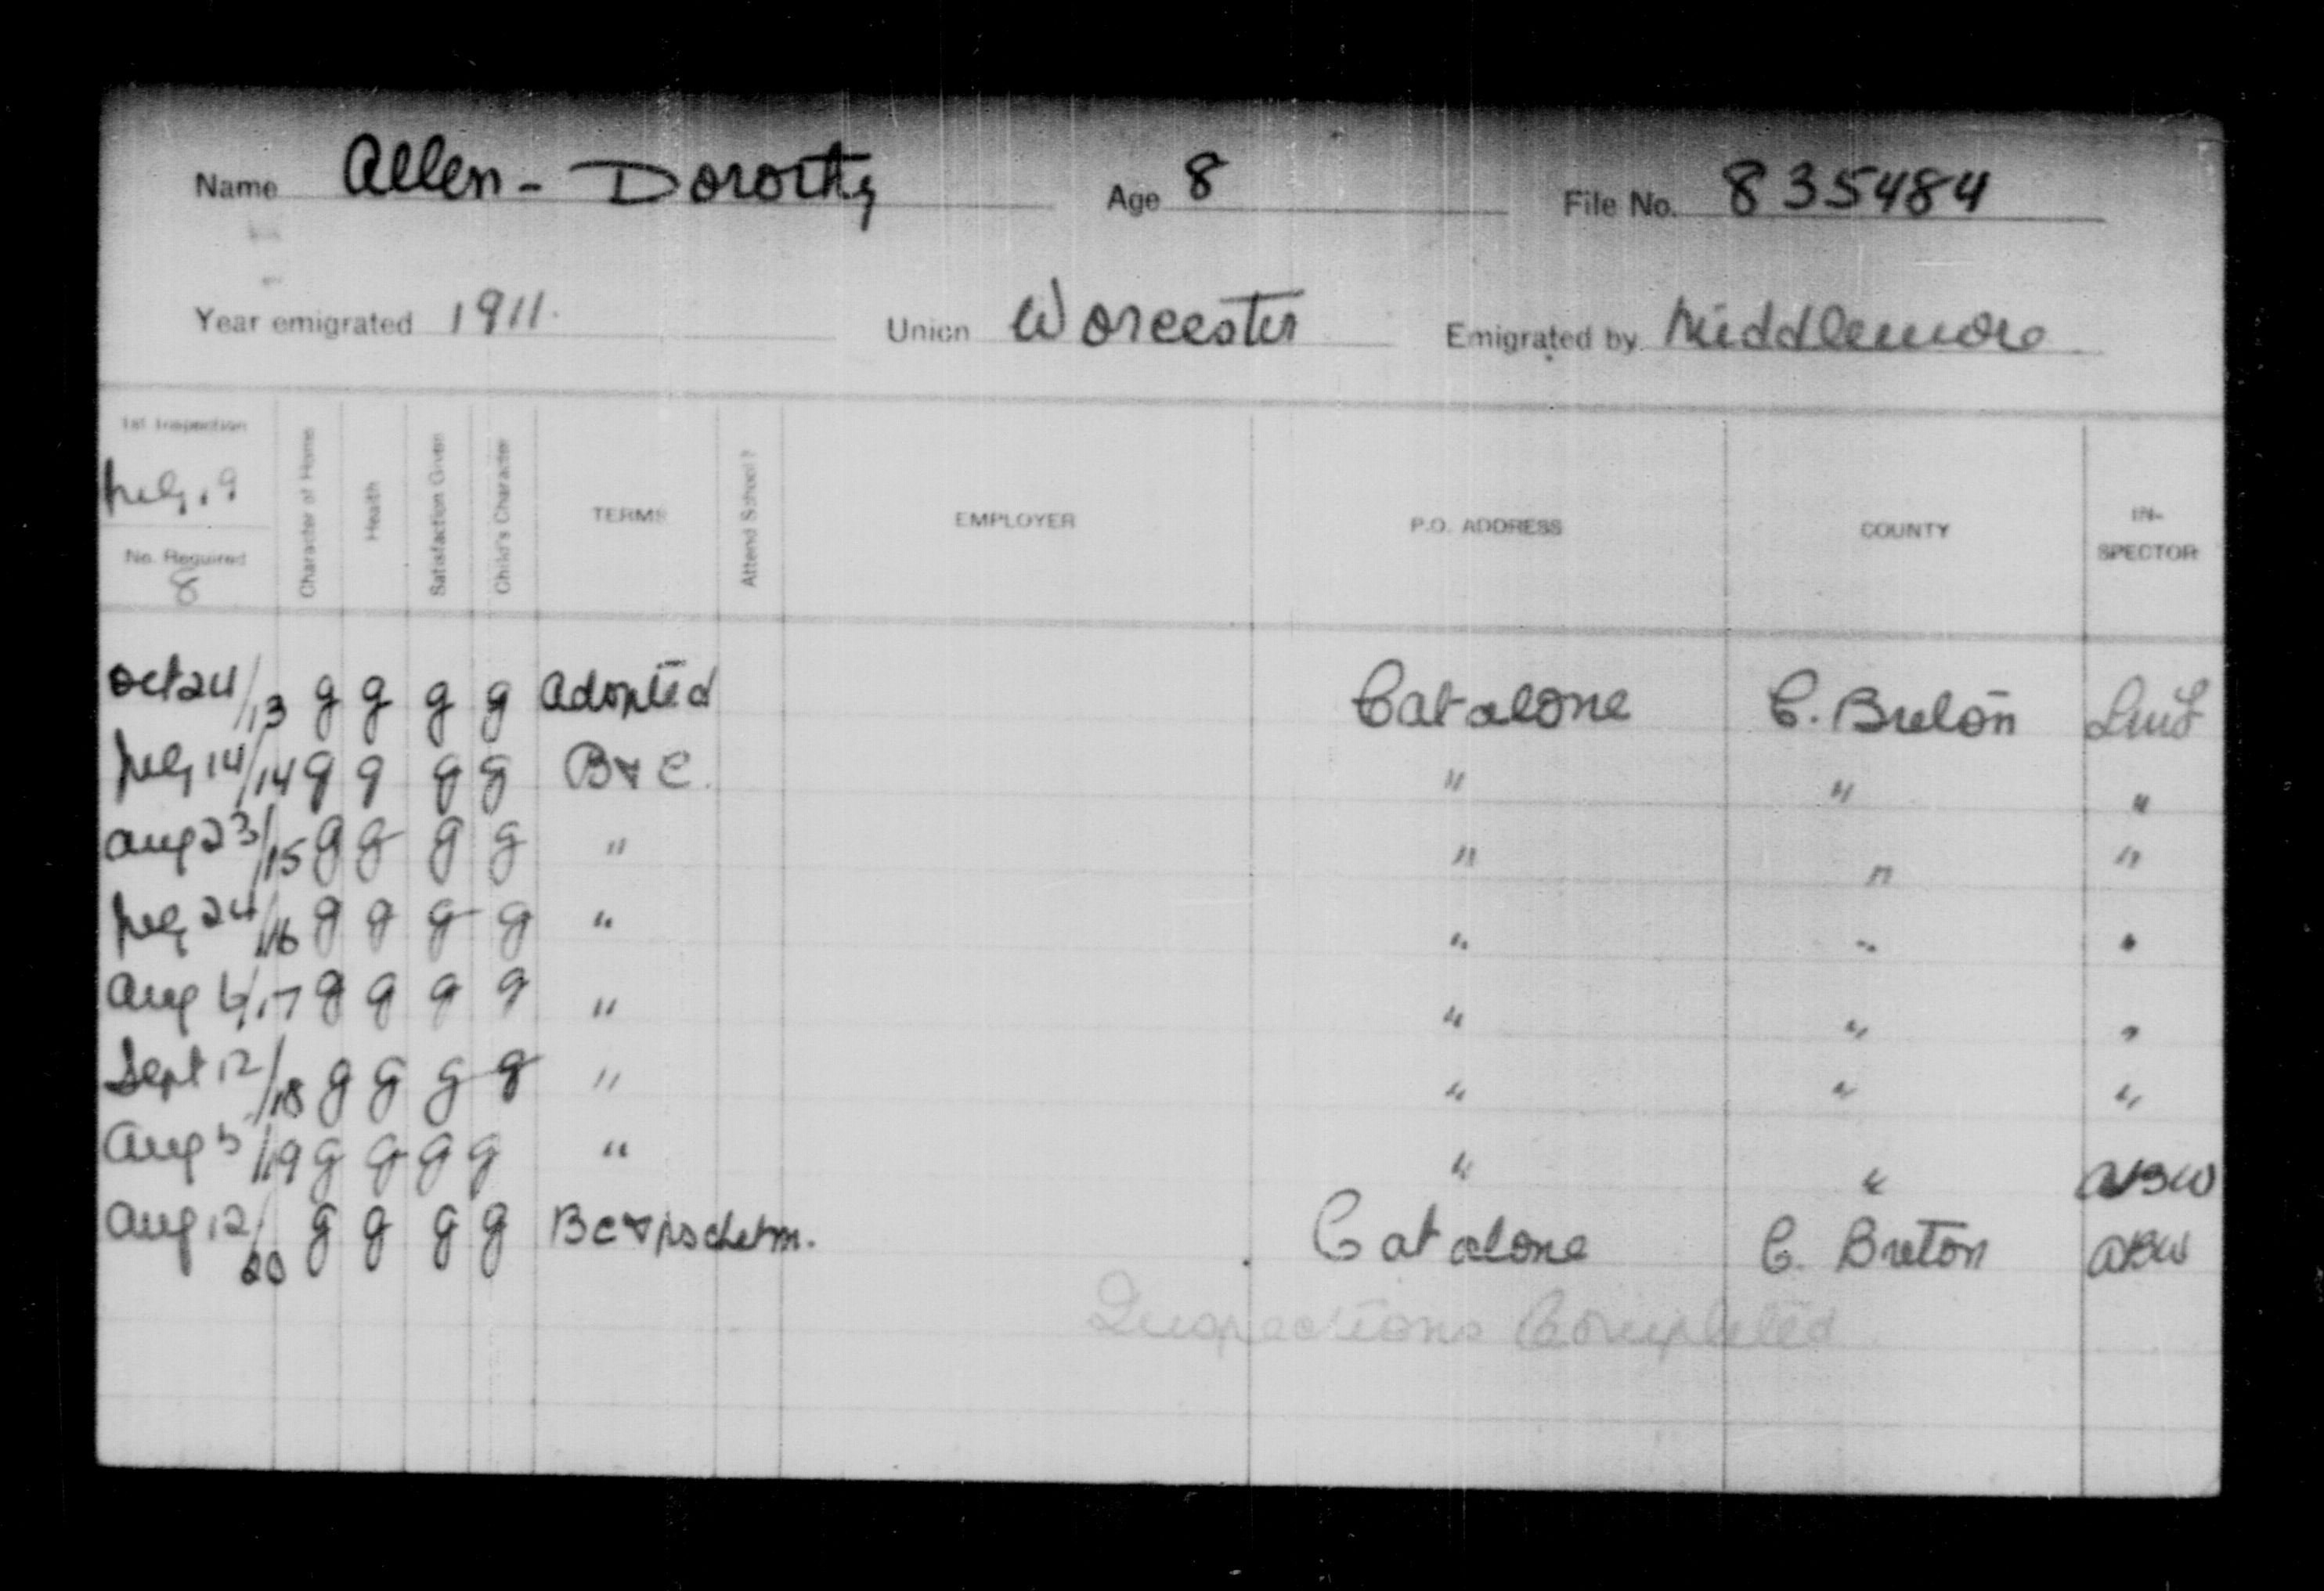 Name Allen - Dorothy Age 8 File No. 835484
Year emigrated 1911. Union Worcester Emigrated by Middlemore
1st Inspection
July 19
No. Required
8
Character of Home
Health
Satisfaction Given
Child's Character
TERMS
Attend School?
EMPLOYER
P.O. ADDRESS
COUNTY
IN-
SPECTOR
Oct 24/13 g g g g Adopted Catalone C. Breton
July 14/14 g g g g B & C. " " "
Aug 23/15 g g g g " " " "
July 24/16 g g g g " " " "
Aug 6/17 g g g g " " " "
Sept 12/18 g g g g " " " "
Aug 5/19 g g g g " " " ABW
Aug 12/20 g g g g B C & Catalone C. Breton ABW
Inspections Completed